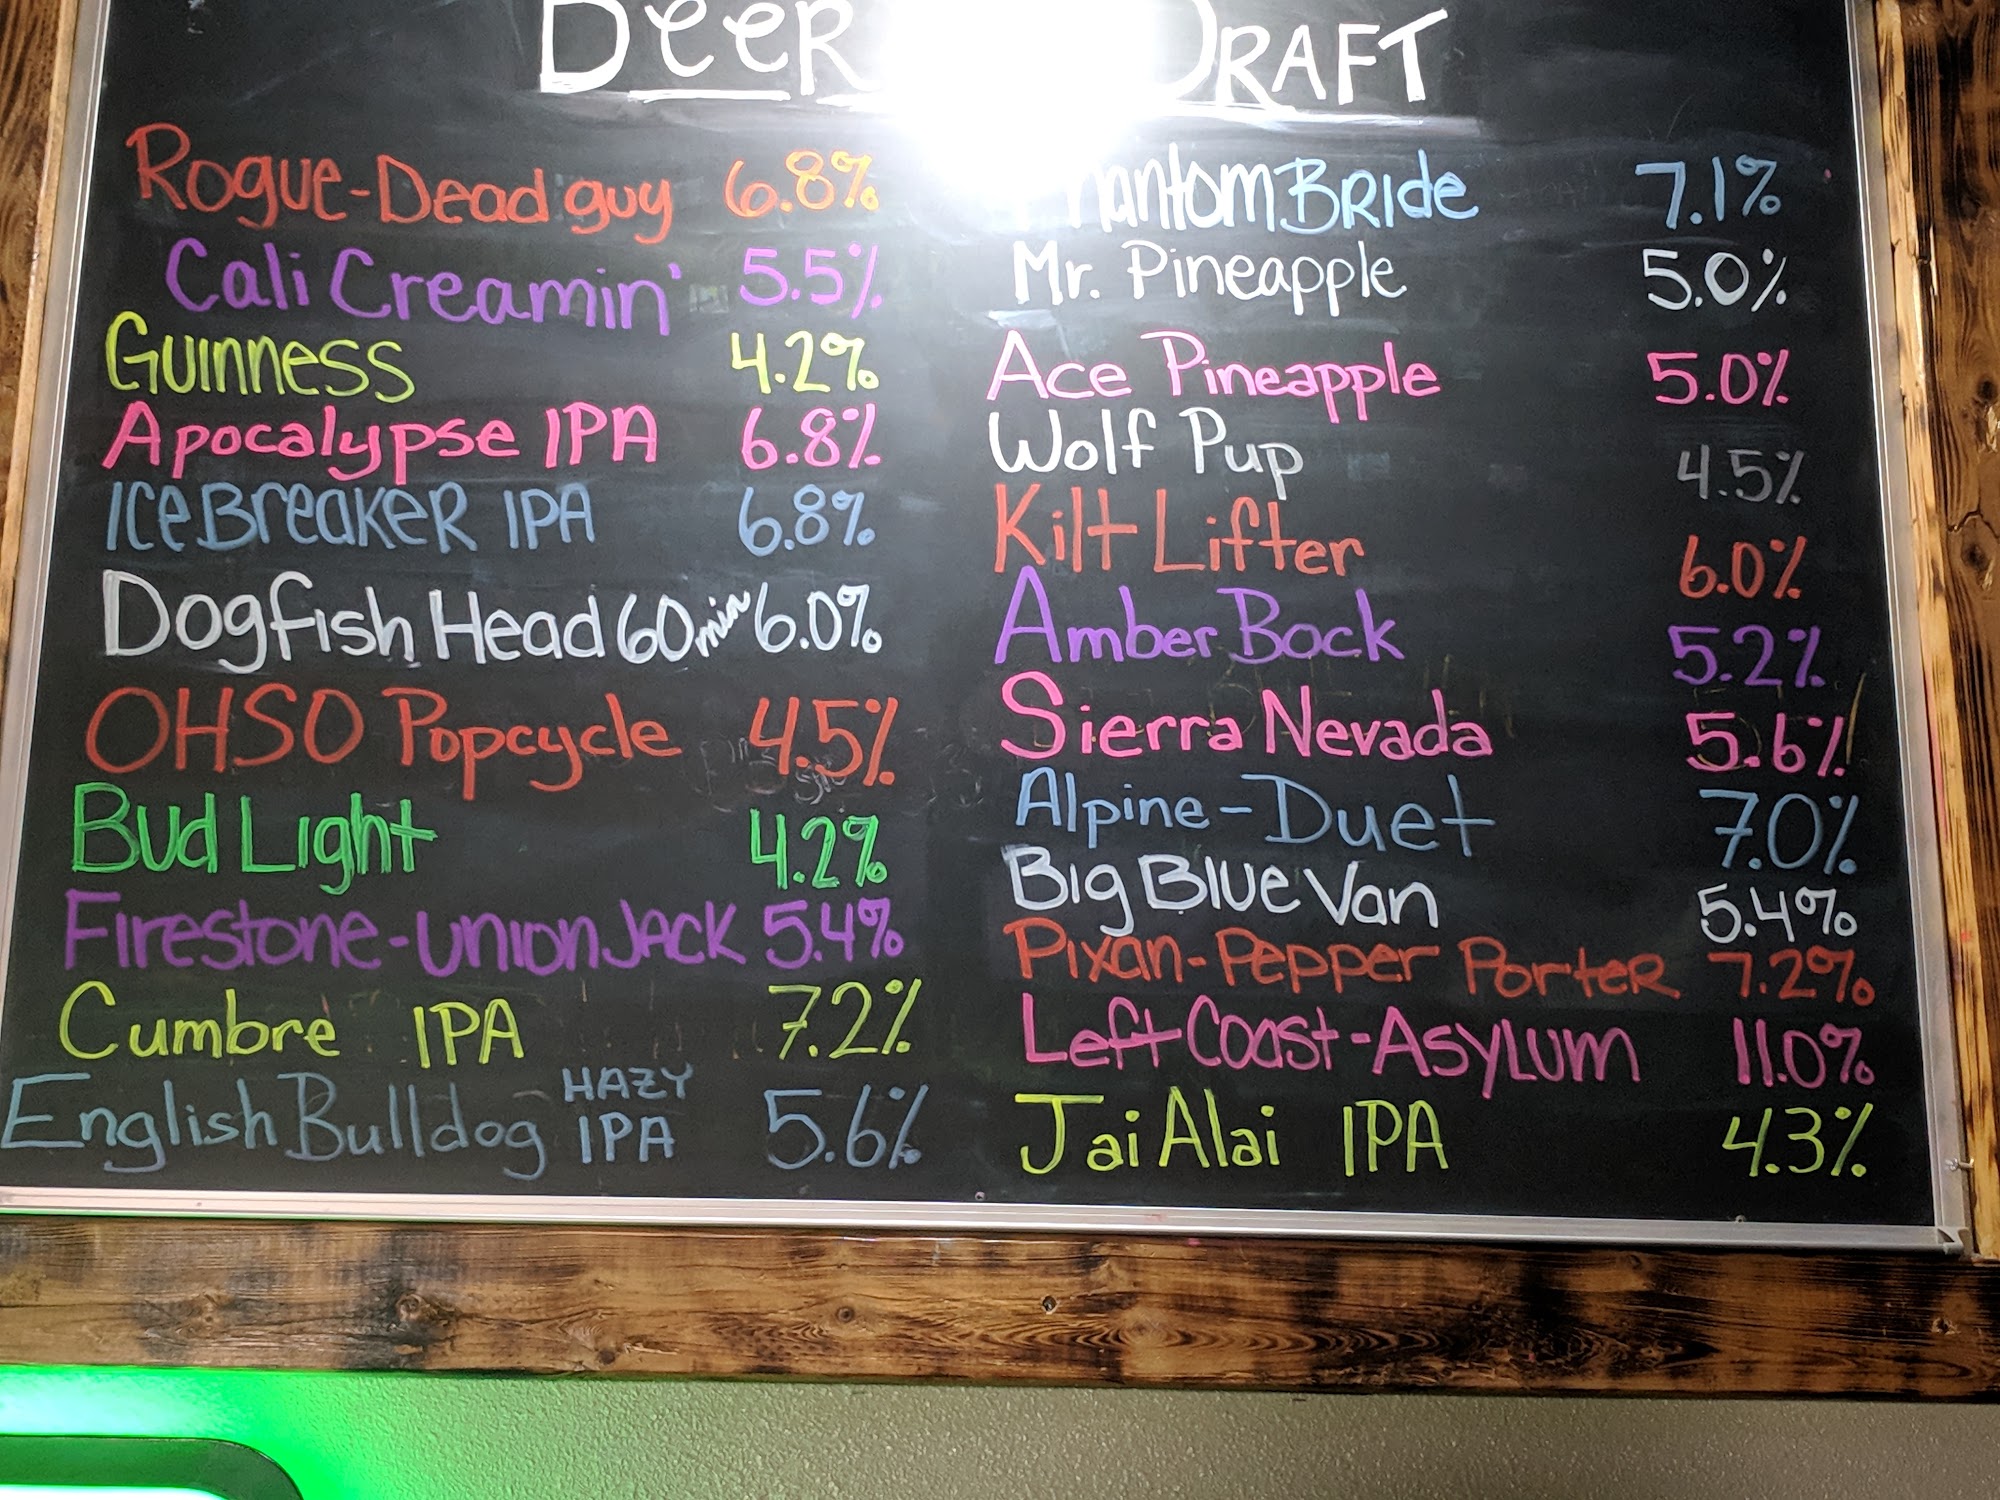 Beer DRAFT
Rogue-Dead guy 6.8%
Cali Creamin' 5.5%
Guinness 4.2%
Apocalypse IPA 6.8%
Ice Breaker IPA 6.8%
Dogfish Head 60 min 6.0%
OHSO Popcycle 4.5%
Bud Light 4.2%
Firestone-Union Jack 5.4%
Cumbre IPA 7.2%
English Bulldog HAZY IPA 5.6%
Phantom Bride 7.1%
Mr. Pineapple 5.0%
Ace Pineapple 5.0%
Wolf Pup 4.5%
Kilt Lifter 6.0%
Amber Bock 5.2%
Sierra Nevada 5.6%
Alpine-Duet 7.0%
Big Blue Van 5.4%
Pixan-Pepper Porter 7.2%
Left Coast-Asylum 11.0%
Jai Alai IPA 4.3%